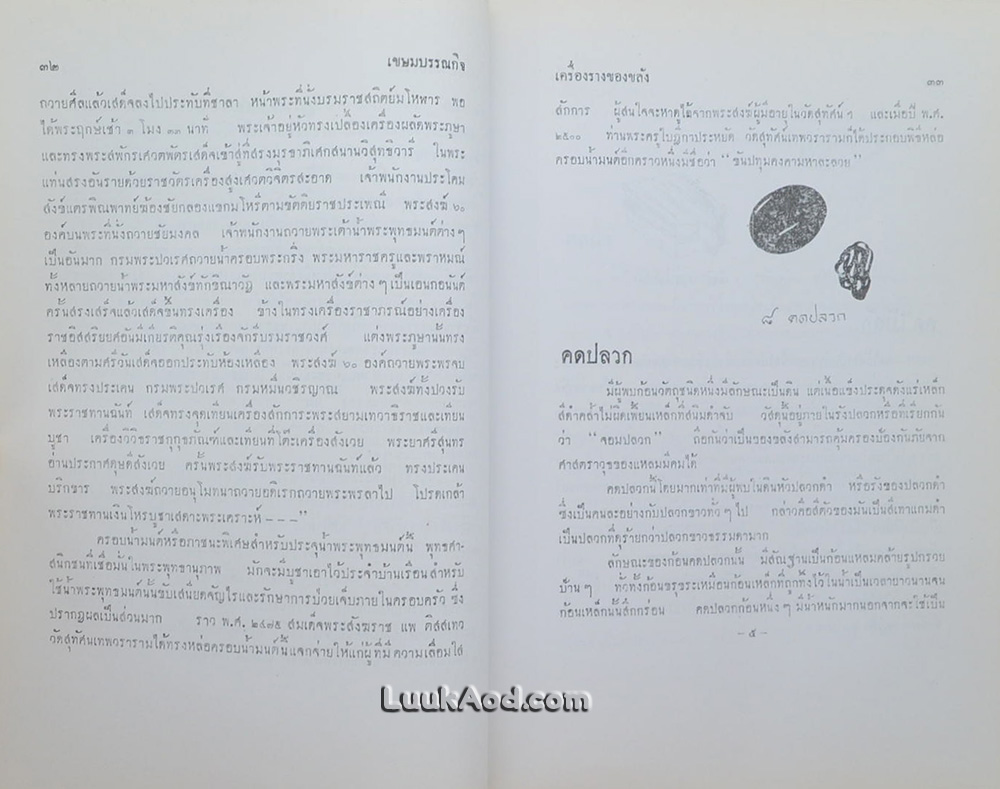 ๓๒ เขษมบรรณกิจ
ถวายศีลแล้วเสด็จลงไปประทับที่ชาลา หน้าพระที่นั่งบรมราชสถิตย์มโหฬาร พอ
ได้พระฤกษ์เช้า ๓ โมง ๓๓ นาที พระเจ้าอยู่หัวทรงเปลื้องเครื่องผลัดพระภูษา
และทรงพระสพักรเศวตพัตรเสด็จเข้าสู่ที่สรงมุรธาภิเศกสนานวิสุทธิวารี ในพระ
แท่นสรงอันรายด้วยราชวัตรเครื่องสูงเศวตวิจิตรสะอาด เจ้าพนักงานประโคม
สังข์แตรพิณพาทย์ฆ้องชัยกลองแขกมโหรีตามขัตติยราชประเพณี พระสงฆ์ ๖๑
องค์บนพระที่นั่งถวายชัยมงคล เจ้าพนักงานถวายพระเต้าน้ำพระพุทธมนต์ต่าง ๆ
เป็นอันมาก กรมพระปวเรศถวายน้ำครอบพระกริ่ง พระมหาราชครูและพราหมณ์
ทั้งหลายถวายน้ำพระมหาสังข์ทักขิณาวัฏ และพระมหาสังข์ต่าง ๆ เป็นเอนกอนันต์
ครั้นสรงเสร็จแล้วเสด็จขึ้นทรงเครื่อง ข้างในทรงเครื่องราชาภรณ์อย่างเครื่อง
ราชอิสสริยยศอันมีเกียรติคุณรุ่งเรืองจักรีบรมราชวงศ์ แต่งพระภูษานั้นทรง
เหลืองตามศรีวันเสด็จออกประทับห้องเหลือง พระสงฆ์ ๖๑ องค์ถวายพระพรจบ
เสด็จทรงประเคน กรมพระปวเรศ กรมหมื่นวชิรญาณ พระสงฆ์ทั้งปวงรับ
พระราชทานฉันท์ เสด็จทรงจุดเทียนเครื่องสักการะพระสยามเทวาธิราชและเทียน
บูชา เครื่องวิวิธราชกุกุธภัณฑ์และเทียนที่โต๊ะเครื่องสังเวย พระยาศรีสุนทร
อ่านประกาศดุษดีสังเวย ครั้นพระสงฆ์รับพระราชทานฉันท์แล้ว ทรงประเคน
บริกขาร พระสงฆ์ถวายอนุโมทนาถวายอดิเรกถวายพระพรลาไป โปรดเกล้า
พระราชทานเงินโหรบูชาเสดาะพระเคราะห์ – – –”
ครอบน้ำมนต์หรือภาชนะพิเศษสำหรับประจุน้ำพระพุทธมนต์นี้ พุทธศา-
สนิกชนที่เชื่อมั่นในพระพุทธานุภาพ มักจะมีบูชาเอาไว้ประจำบ้านเรือนสำหรับ
ใช้น้ำพระพุทธมนต์นั้นขับเสนียดจัญไรและรักษาการป่วยเจ็บภายในครอบครัว ซึ่ง
ปรากฏผลเป็นส่วนมาก ราว พ.ศ. ๒๔๗๕ สมเด็จพระสังฆราช แพ ติสสเทว
วัดสุทัศน์เทพวรารามได้ทรงหล่อครอบน้ำมนต์ขึ้นแจกจ่ายให้แก่ผู้ที่มีความเลื่อมใส
เครื่องรางของขลัง ๓๓
สักการ ผู้สนใจจะหาดูได้จากพระสงฆ์ผู้มีอายุในวัดสุทัศน์ ฯ และเมื่อปี พ.ศ.
๒๕๐๐ ท่านพระครูใบฎีกาประหยัด วัดสุทัศน์เทพวรารามก็ได้ประกอบพิธีหล่อ
ครอบน้ำมนต์อีกคราวหนึ่งมีชื่อว่า “ขันปทุมคงคามหาละลวย”
๘ คดปลวก
คดปลวก
มีผู้พบก้อนวัตถุชนิดหนึ่งมีลักษณะเป็นดิน แต่เนื้อแข็งประดุจดังแร่เหล็ก
สีดำคล้ำไม่ผิดเพี้ยนเหล็กที่สนิมดำจับ วัสดุนี้อยู่ภายในรังปลวกหรือที่เรียกกัน
ว่า “จอมปลวก” ถือกันว่าเป็นของขลังสามารถคุ้มครองป้องกันภัยจาก
ศาสตราวุธของแหลมมีคมได้
คดปลวกนี้โดยมากเท่าที่มีผู้พบในดินหัวปลวกดำ หรือรังของปลวกดำ
ซึ่งเป็นคนละอย่างกับปลวกขาวทั่ว ๆ ไป กล่าวคือสีตัวของมันเป็นสีเทาแกมดำ
เป็นปลวกที่ดุร้ายกว่าปลวกขาวธรรมดามาก
ลักษณะของก้อนคดปลวกนั้น มีสัณฐานเป็นก้อนแหลมคล้ายรูปกรวย
บ้าน ๆ ทั่วทั้งก้อนขรุขระเหมือนก้อนเหล็กที่ถูกทิ้งไว้ในน้ำเป็นเวลายาวนานจน
ก้อนเหล็กนั้นสึกกร่อน คดปลวกก้อนหนึ่ง ๆ มีน้ำหนักมากนอกจากจะใช้เป็น
– ๕ –
LuukAod.com